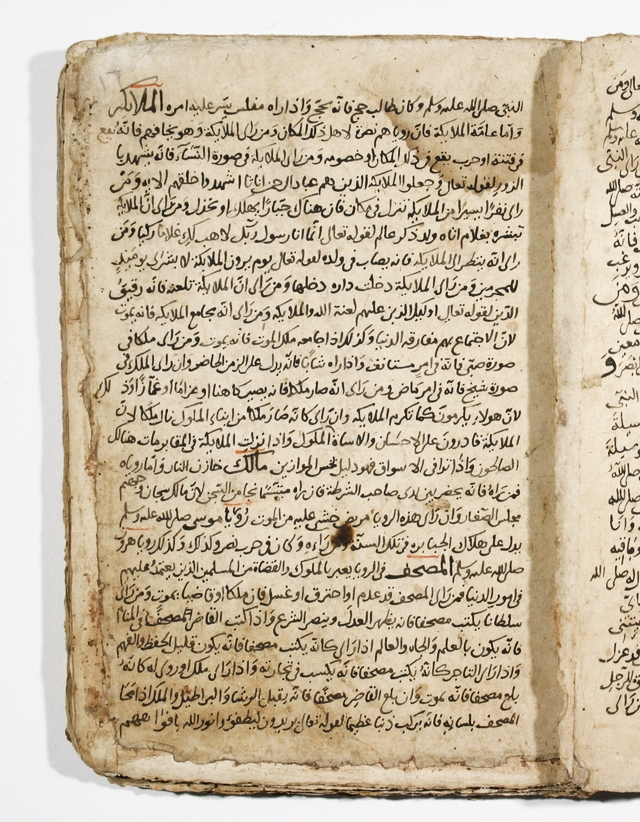 النبي صلى الله عليه وسلم وكان طالب حج فانه يحج واذا راه مفلس يسر عليه امره الملايكة
واما عامة الملايكة فان روياهم نصرة لاهل ذلك المكان ومن راى الملايكة وهو يخافهم فانه يقع
في فتنة او حرب يقع في ذلك المكان او خصومه ومن راى الملايكة في صورة النسا فانه يشهد با
الزور لقوله تعالى وجعلوا الملايكة الذين هم عباد الرحمن اناثا اشهدوا خلقهم الايه ومن
راى الملايكة تنزل في مكان فان هناك جبارا يهلك او يخذل ومن راى ان الملايكة
تبشره بغلام اتاه ولد ذكر عالم لقوله تعالى انما انا رسول ربك لاهب لك غلاما زكيا ومن
راى انه ينظر الى الملايكة فانه يصاب في ولده لقوله تعالى يوم يرون الملايكة لا بشرى يوميذ
للمجرمين ومن راى الملايكة دخلت داره دخلها ومن راى ان الملايكة تلعنه فانه رقيق
الدين لقوله تعالى اوليك الذين عليهم لعنة الله والملايكة ومن راى انه يجامع الملايكة فانه يموت
لان الاجتماع بهم مفارقه الدنيا وكذلك اذا جامعه ملك الموت فانه يموت ومن راى ملكا في
صورة صبي فانه في امر مستانف واذا راه شابا فانه يدل على الزمن الحاضر وان راى الملك في
صورة شيخ فانه في امر ماض ومن راى انه صار ملكا فانه يصير كاهنا او عرافا
لان هولاء يكرمون كما تكرم الملايكة وان راى كانه صار ملكا من ابناء الملوك نال ملكا لان
الملايكة قادرون على الاحسان والاساة كالملوك واذا نزلت الملايكة في المقابر مات هنالك
الصالحون واذا نزلوا في الاسواق فهو دليل بخس الموازين مالك خازن النار واما روياه
فمن راه فانه يحضر بين يدي صاحب الشرطة فان راه مبتسما نجا من السجن لان مالك سجان وجهنم
مجلس وان راى هذه الرويا مريض خشي عليه من الموت رويا موسى صلى الله عليه وسلم
يدل على هلاك الجبابره في تلك السنة وكان في حرب نصر وكذلك وكذلك رويا هرون
صلى الله عليه وسلم المصحف في الرويا يعبر بالملوك والقضاة من المسلمين الذين يعتمد عليهم
في امور الدنيا فمن راى المصحف قد عدم او احترق او غسل فان ملكا او قاضيا يموت ومن راى
سلطانا يكتب مصحفا فانه يظهر العدل وينصر الشرع واذا كتب القاضي المصحف في المنام
فانه يكون بالعلم والجاه والعالم اذا راى كانه يكتب مصحفا فانه يكون قليل الحفظ والفهم
واذا راى التاجر كانه يكتب مصحفا فانه يكسب في تجارته واذا راى ملك او روى له كانه
بلع مصحفا فانه يموت وان بلع القاضي مصحفا فانه يقبل الرشا والبراطيل والملك اذا محا
المصحف بلسانه فانه يركب ذنبا عظيما لقوله تعالى يريدون ليطفئوا نور الله بافواههم